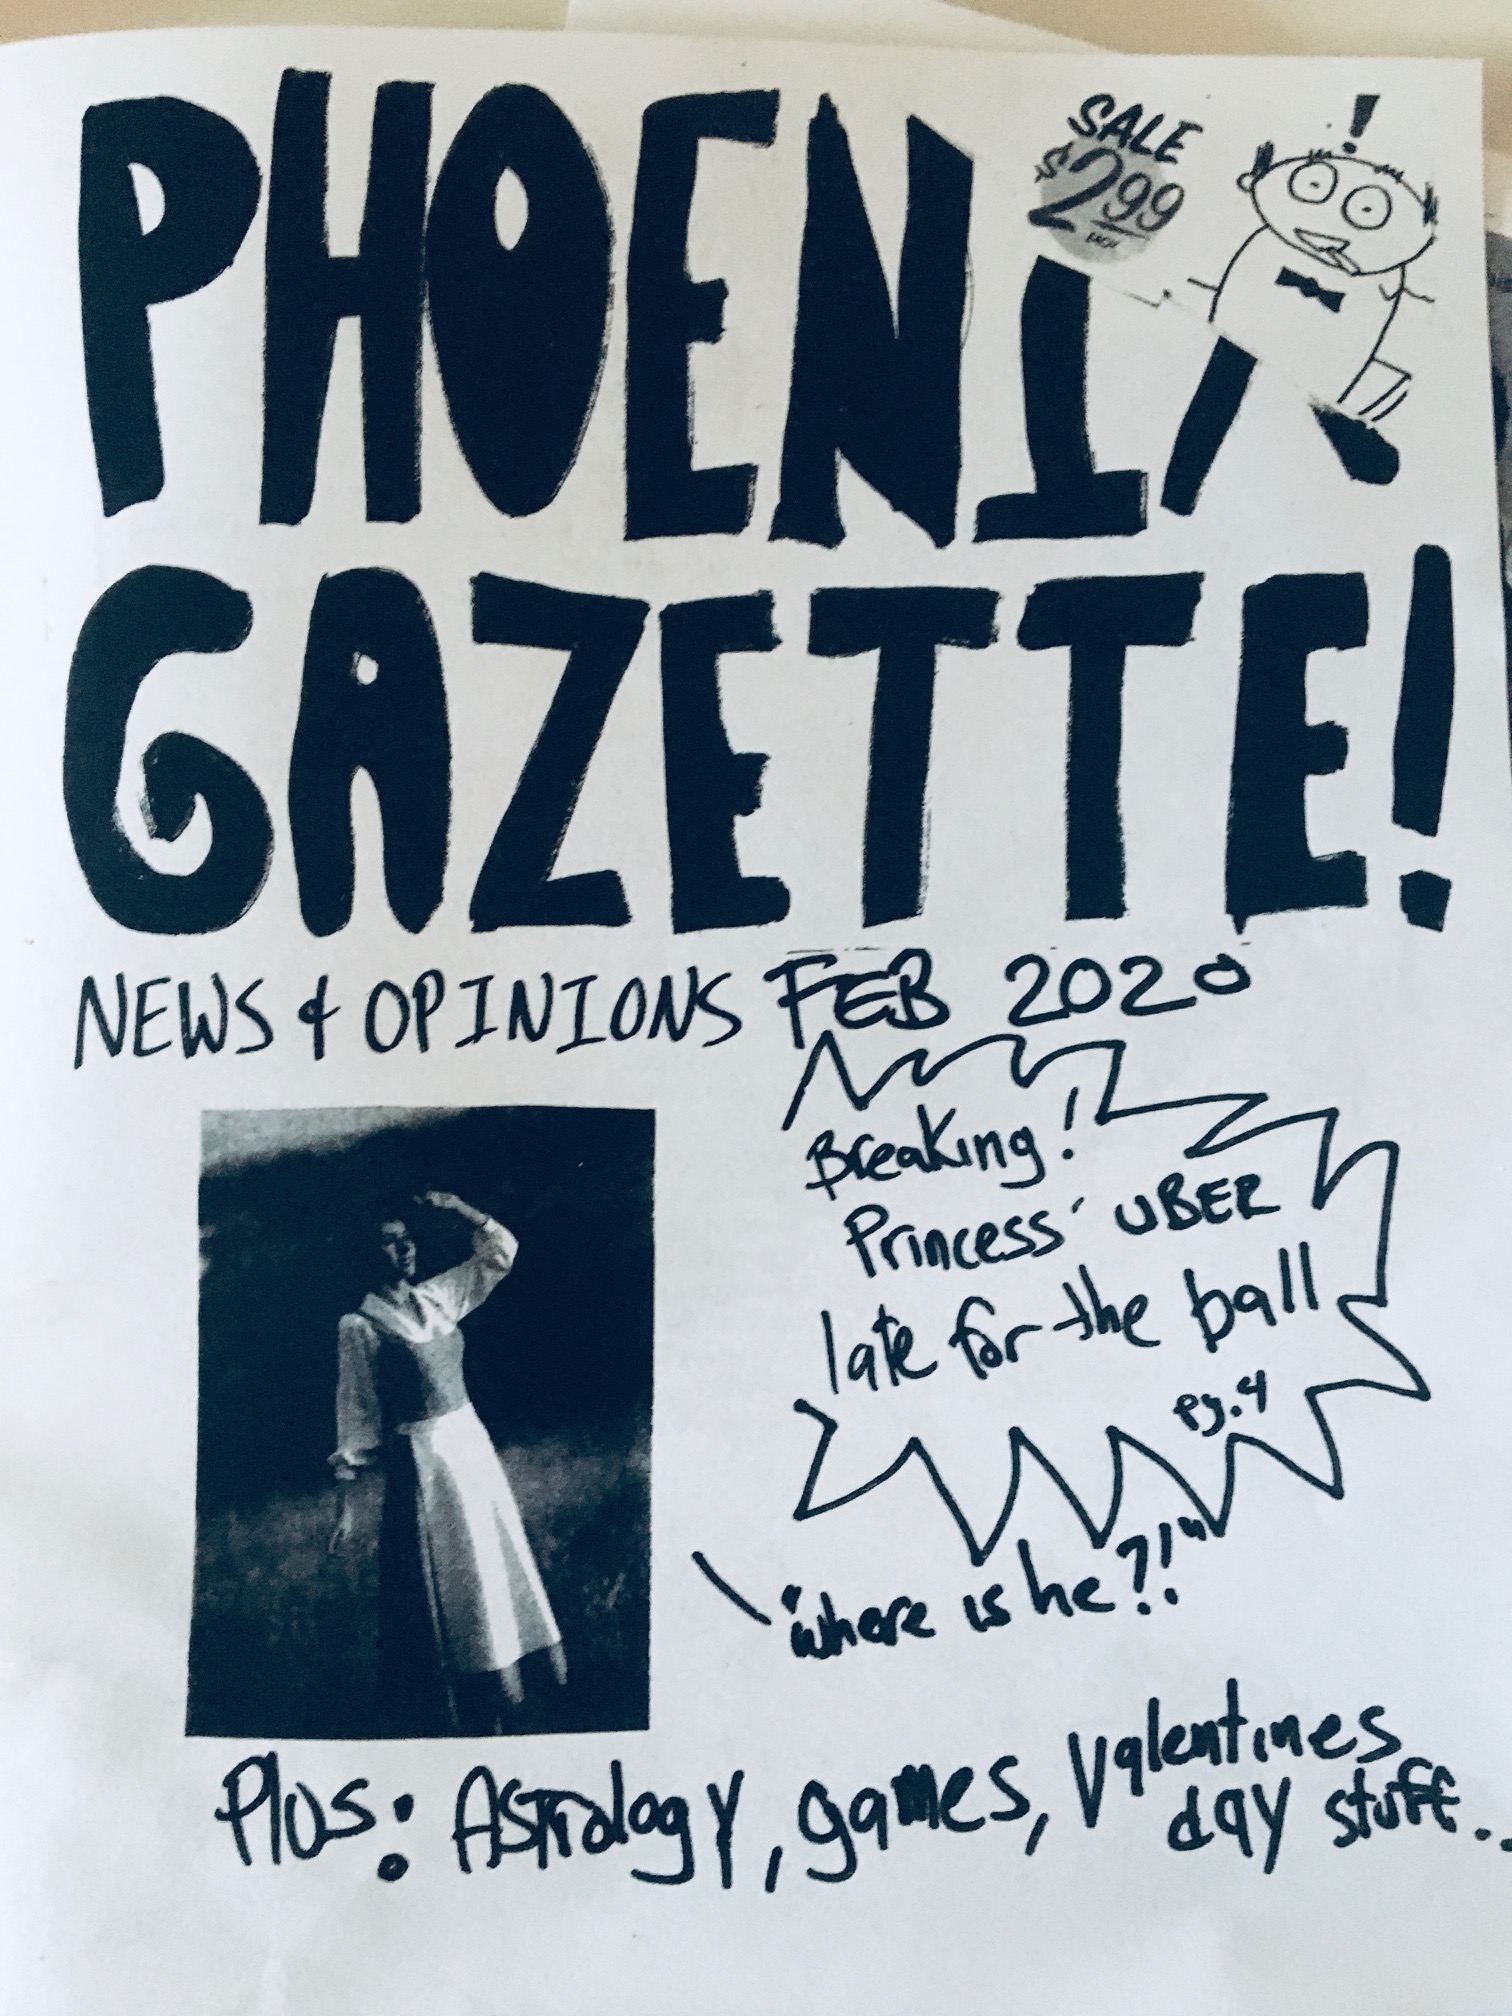 PHOENIX
SALE
$2.99
EACH
!
GAZETTE!
NEWS & OPINIONS FEB 2020
Breaking!
Princess' UBER
late for the ball
pg. 4
"where is he?!"
Plus: Astrology, games, Valentines
day stuff..